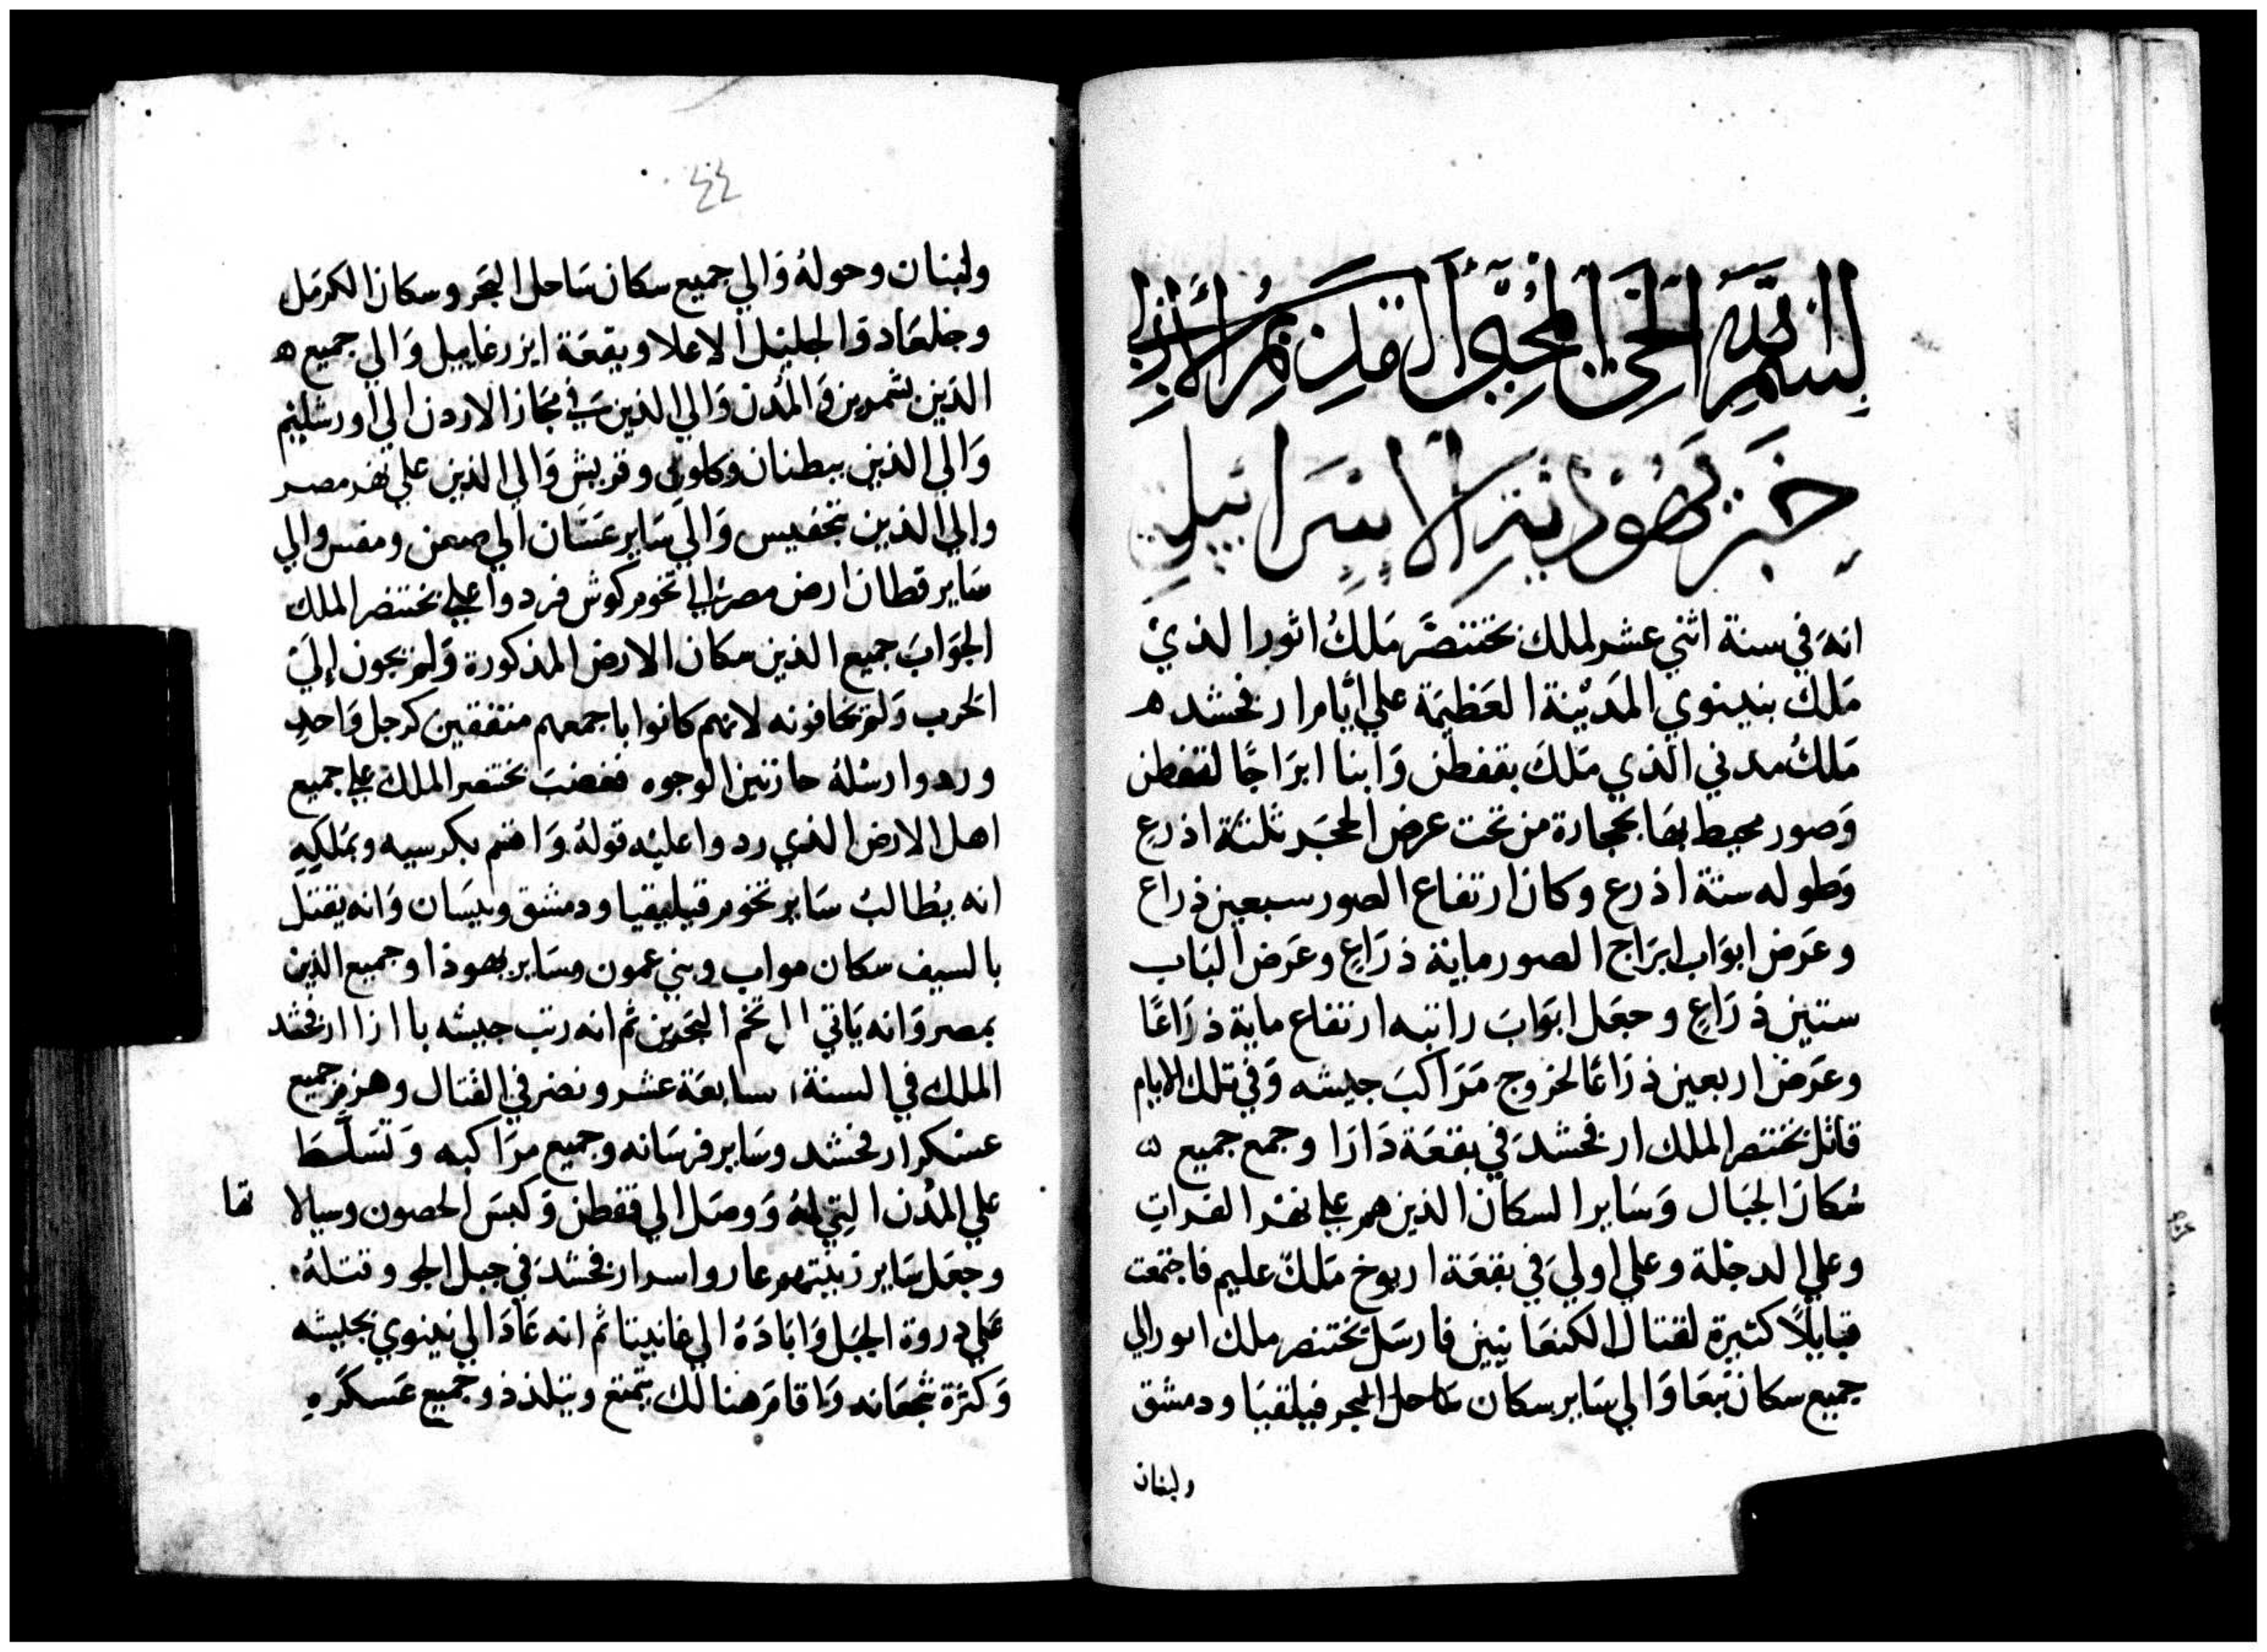 بسم الله الحي المحيي القديم الازلي
خبر يهوديت الاسراييلية
انه في سنة اثني عشر لملك بختنصر ملك اثور الذي
ملك بنينوي المدينة العظيمة علي ايام ارفخشد ه
ملك مدني الذي ملك بقفطن وابنا ابراجا لقفطن
وصور محيط بها بحجارة من تحت عرض الحجر ثلثة اذرع
وطوله ستة اذرع وكان ارتفاع الصور سبعين ذراع
وعرض ابواب ابراج الصور ماية ذراع وعرض الباب
ستين ذراع وجعل ابواب راتبه ارتفاع ماية ذراعا
وعرض اربعين ذراعا لخروج مراكب جيشه وفي تلك الايام
قاتل بختنصر الملك ارفخشد في بقعة دارا وجمع جميع ه
سكان الجبال وساير السكان الذين هم علي نهر الفرات
وعلي الدجلة وعلي اولي في بقعة اريوخ ملك عليم فاجتمعت
قبايلا كثيرة لقتال الكنعانيين فارسل بختنصر ملك اثور الي
جميع سكان تبعا والي ساير سكان ساحل البحر قيلقيا ودمشق
ولبنان
٤٤
ولبنان وحوله والي جميع سكان ساحل البحر وسكان الكرمل
وجلعاد والجليل الاعلا وبقعة ايزرغاييل والي جميع ه
الذين بشمرين والمدن والي الذين في مجاز الاردن الي اورشليم
والي الذين ببطنان وكلوس وقريش والي الذين علي نهر مصر
والي الذين بتحفيس والي ساير عسان الي صعن ومفس والي
ساير قطان ارض مصر الي تخوم كوش فردوا علي بختنصر الملك
الجواب جميع الذين سكان الارض المذكورة ولم يجون إلي
الحرب ولم يخافونه لانهم كانوا باجمعهم متفقين كرجل واحد
وردوا رسله حازنين الوجوه فغضب بختنصر الملك علي جميع
اهل الارض الذي ردوا عليه قوله واقسم بكرسيه وبملكه
انه يطالب ساير تخوم قيليقيا ودمشق ونيسان وانه يقتل
بالسيف سكان مواب وبني عمون وساير يهوذا وجميع الذين
بمصر وانه ياتي الي تخم البحرين ثم انه رتب جيشه بازا ارفخشد
الملك في السنة السابعة عشر ونصر في القتال وهزم جميع
عسكر ارفخشد وساير فرسانه وجميع مراكبه وتسلط
علي المدن التي له ووصل الي قفطن وكبس الحصون وسبالا تها
وجعل ساير زينتهم عار واسر ارفخشد في جبل الجو وقتله
علي دروة الجبل وابادة الي غانينا ثم انه عاد الي نينوي بجيشه
وكثرة شجعانه واقام هنالك يتمتع ويتلذذ وجميع عسكره